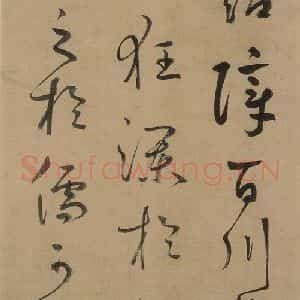 紹障百川
狂瀾於
之於儒可
Shufawang.CN